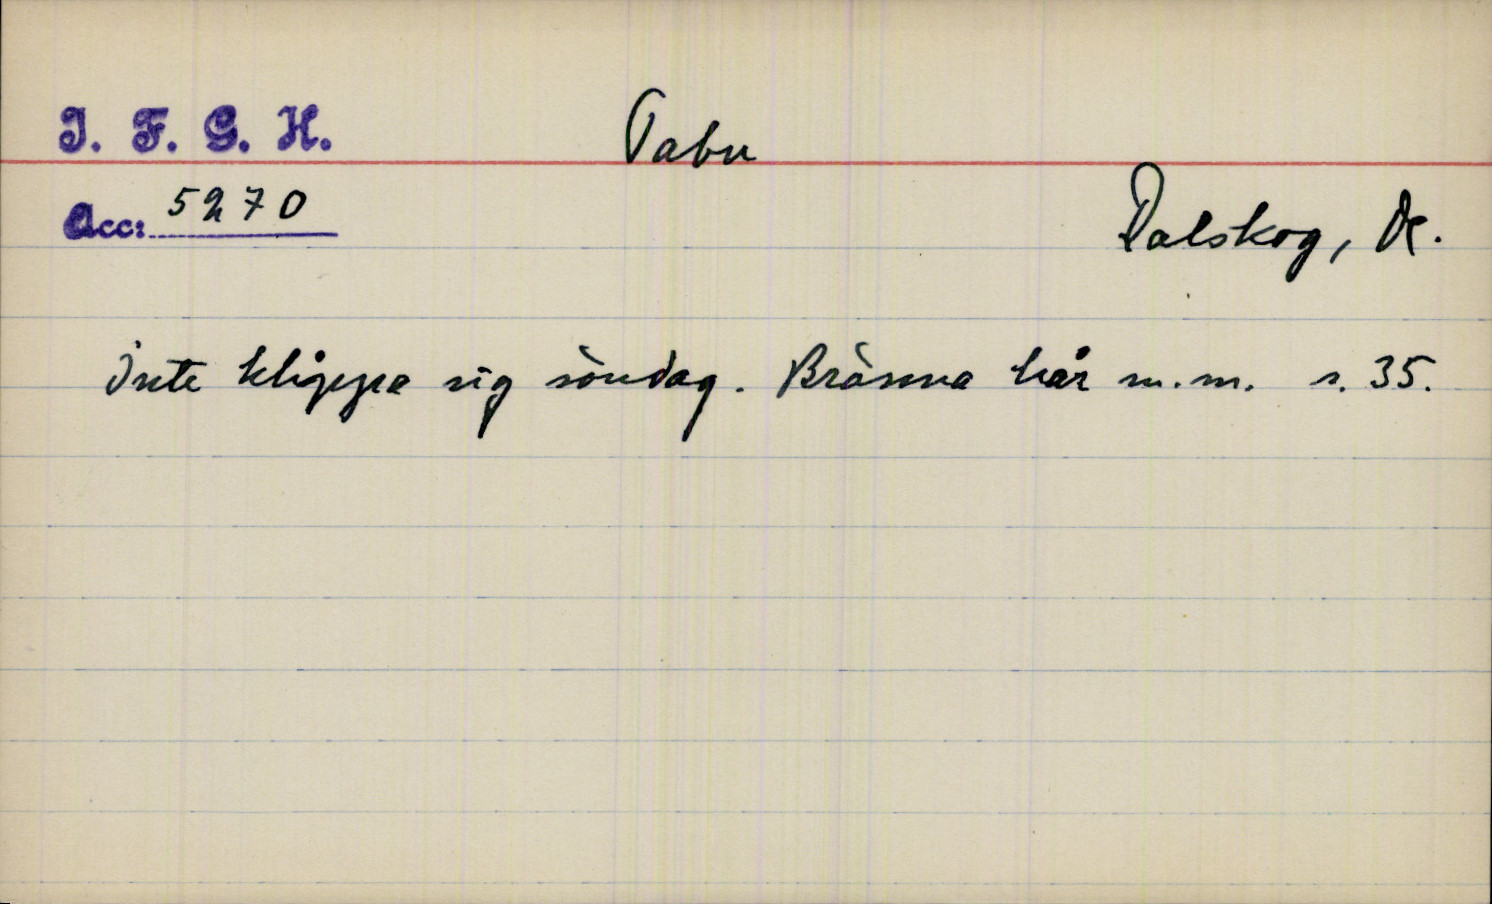 I. F. G. H.
Tabu
Acc: 5270
Dalskog, Ds.
Inte klippa sig söndag. Bränna hår m.m. s. 35.